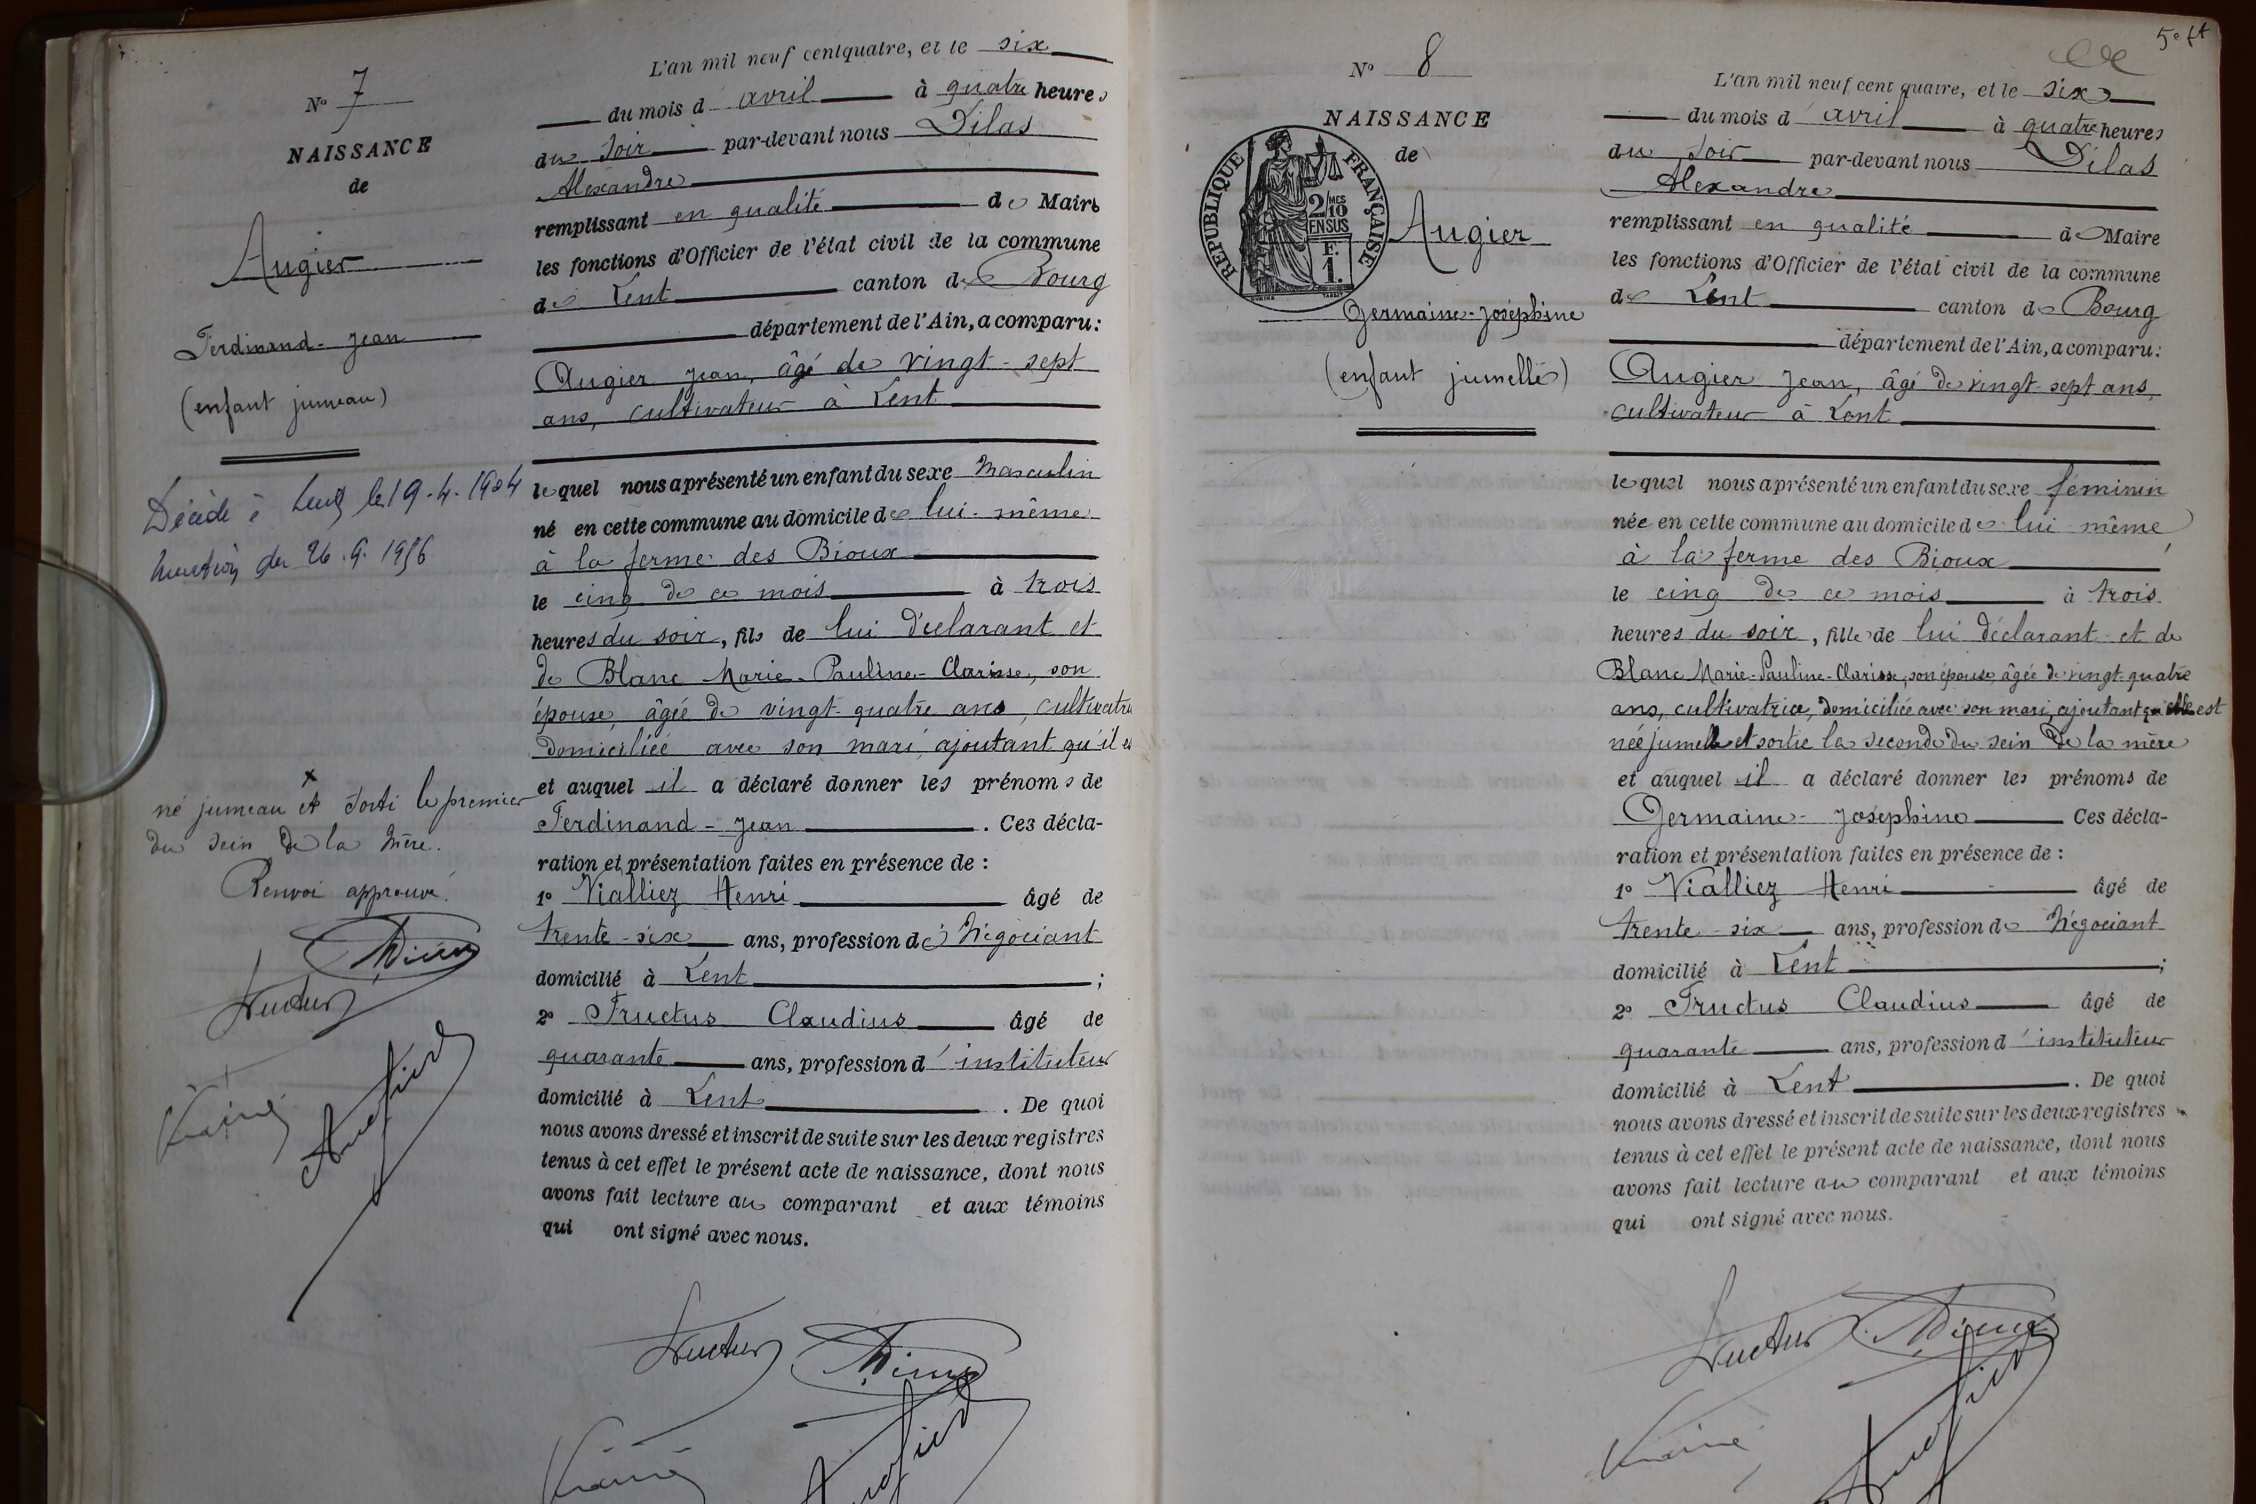 L'an mil neuf cent quatre, et le six
N° 7
du mois d avril à quatre heures
NAISSANCE
du soir par-devant nous Dilas
de
Alexandre
remplissant en qualité de Maire
Augier
les fonctions d'Officier de l'état civil de la commune
de Lent canton de Bourg
Ferdinand-Jean
département de l'Ain, a comparu:
(enfant jumeau)
Augier Jean, âgé de vingt-sept
ans, cultivateur à Lent
Décédé à le 19.4.1904
lequel nous a présenté un enfant du sexe Masculin
né en cette commune au domicile de lui-même
à la ferme des Bioux
26.9.1956
le cinq de ce mois à trois
heures du soir, fils de lui déclarant et
de Blanc Marie-Pauline-Clarisse, son
épouse, âgée de vingt-quatre ans, cultivatri
domiciliée avec son mari, ajoutant qu'il e
né jumeau et sorti le premier
du sein de la mère.
Renvoi approuvé.
et auquel il a déclaré donner les prénoms de
Ferdinand-Jean. Ces décla-
ration et présentation faites en présence de :
1° Vialliez Henri âgé de
trente-six ans, profession de Négociant
domicilié à Lent ;
Fructus
2° Fructus Claudius âgé de
quarante ans, profession d'instituteur
domicilié à Lent. De quoi
nous avons dressé et inscrit de suite sur les deux registres
tenus à cet effet le présent acte de naissance, dont nous
avons fait lecture au comparant et aux témoins
qui ont signé avec nous.
Fructus
5e ft
N° 8
L'an mil neuf cent quatre, et le six
NAISSANCE
du mois d'avril à quatre heures
de
du soir par-devant nous Dilas
Alexandre
RÉPUBLIQUE FRANÇAISE
2/10 MES
EN SUS
F.
1.
Augier
remplissant en qualité de Maire
les fonctions d'Officier de l'état civil de la commune
de Lent canton de Bourg
Germaine-Joséphine
département de l'Ain, a comparu:
(enfant jumelle)
Augier Jean, âgé de vingt-sept ans,
cultivateur à Lent
lequel nous a présenté un enfant du sexe féminin
née en cette commune au domicile de lui-même
à la ferme des Bioux
le cinq de ce mois à trois
heures du soir, fille de lui déclarant et de
Blanc Marie-Pauline-Clarisse, son épouse, âgée de vingt-quatre
ans, cultivatrice, domiciliée avec son mari, ajoutant qu'elle est
née jumelle et sortie la seconde du sein de la mère
et auquel il a déclaré donner les prénoms de
Germaine-Joséphine Ces décla-
ration et présentation faites en présence de :
1° Vialliez Henri âgé de
trente-six ans, profession de Négociant
domicilié à Lent ;
2° Fructus Claudius âgé de
quarante ans, profession d'instituteur
domicilié à Lent. De quoi
nous avons dressé et inscrit de suite sur les deux registres
tenus à cet effet le présent acte de naissance, dont nous
avons fait lecture au comparant et aux témoins
qui ont signé avec nous.
Fructus